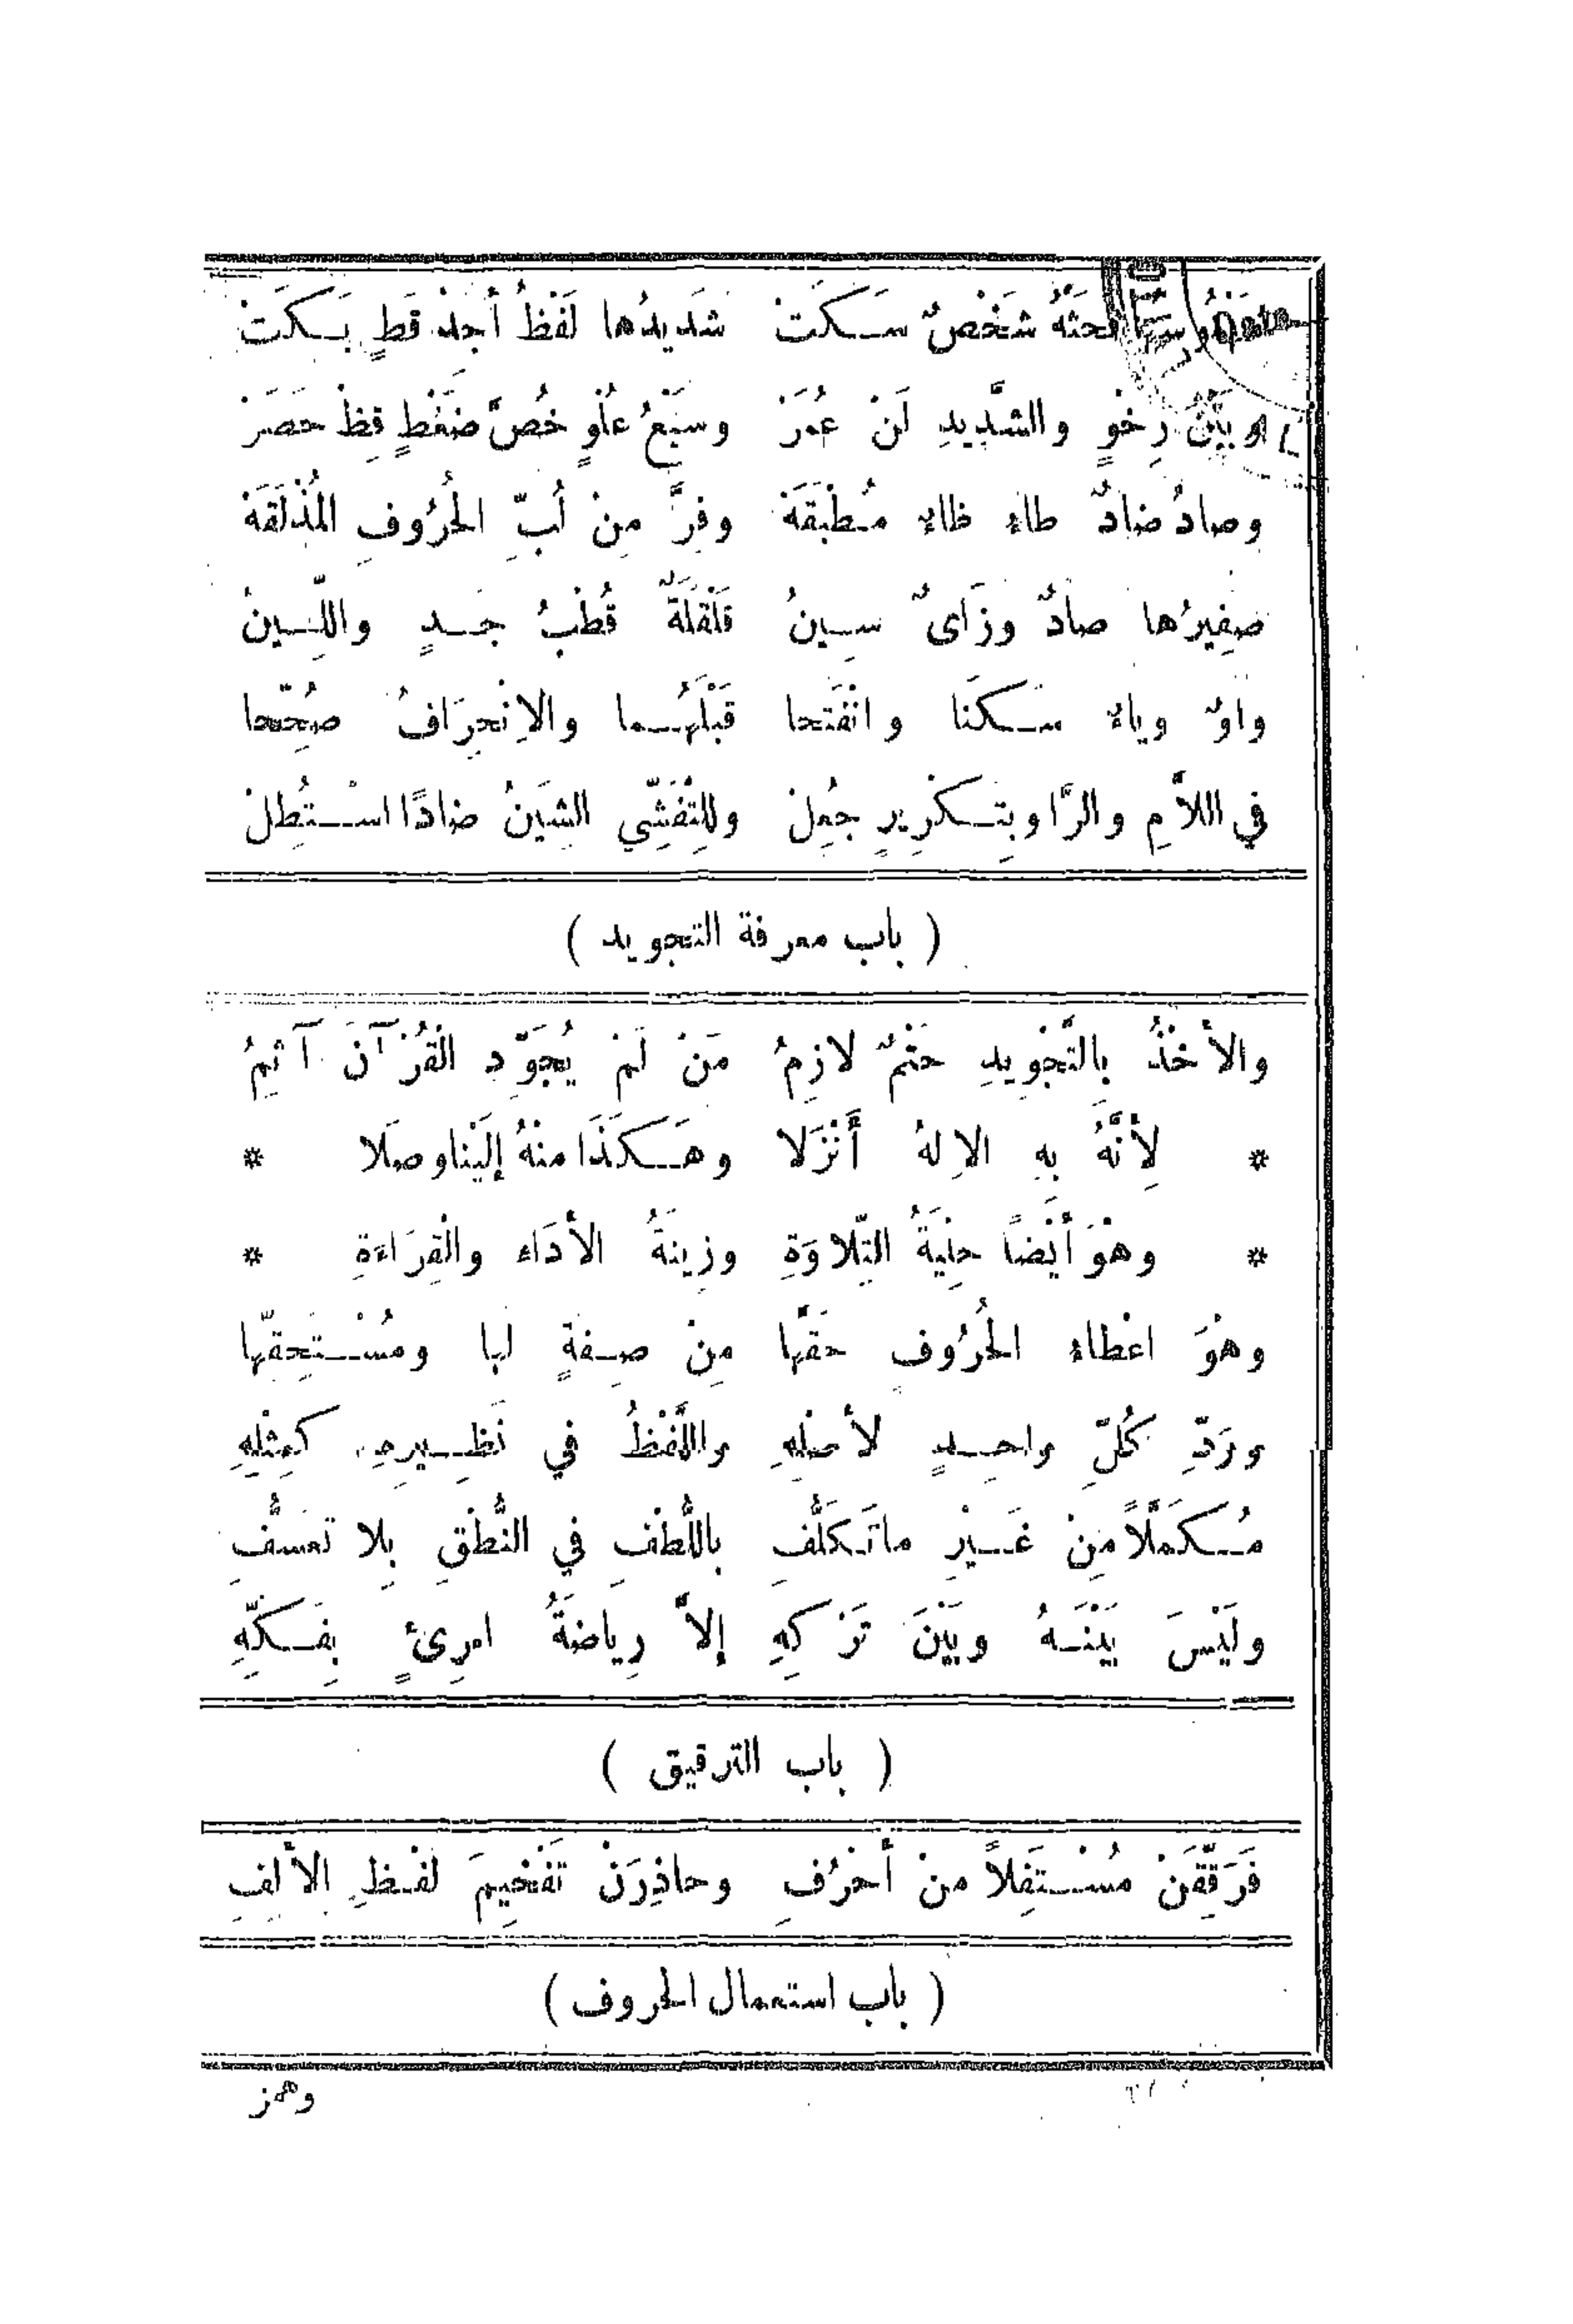 مَهْمُوسُهَا فَحَثَّهُ شَخْصٌ سَكَتْ شَدِيدُها لَفْظُ أَجِدْ قَطٍ بَكَتْ
وبَيْنَ رِخْوٍ والشَّدِيدِ لِنْ عُمَرْ وسَبْعُ عُلْوٍ خُصَّ ضَغْطٍ قِظْ حَصَرْ
وصادُ ضادٌ طاءُ ظاءٌ مُطْبَقَهْ وفِرَّ مِنْ لُبِّ الحُرُوفِ المُذْلَقَهْ
صَفِيرُها صادٌ وزَاىٌ سِينُ قَلْقَلَةٌ قُطْبُ جَدٍ واللِّينُ
واوٌ وياءٌ سَكَنَا وانْفَتَحا قَبْلَهُما والاِنْحِرَافُ صُحِّحا
في اللاَّمِ والرَّا وبِتَكْرِيرٍ جُعِلْ وللِتَّفَشِّي الشِّينُ ضادًا اسْتُطِلْ
( باب معرفة التجويد )
والأخْذُ بِالتَّجْوِيدِ حَتْمٌ لازِمُ مَنْ لَمْ يُجَوِّدِ القُرْآنَ آثِمُ
* لِأنَّهُ بِهِ الاِلهُ أَنْزَلا وهَكَذَا منهُ إلَيْنا وصَلا *
* وهْوَ أيْضاً حِلْيَةُ التِّلاوَةِ وزِينَةُ الأدَاء والْقِرَاءَةِ *
وهْوَ اعْطاء الحُرُوفِ حَقَّها مِنْ صِفةٍ لها ومُسْتَحِقَّها
ورَدُّ كُلِّ واحِدٍ لأصْلِهِ واللَّفْظُ في نَظِيرِهِ كَمِثْلِهِ
مُكَمَّلاً مِنْ غَيْرِ ماتَكَلُّفِ باللُّطْفِ في النُّطْقِ بِلا تعَسُّفِ
ولَيْسَ بَيْنَهُ وبَيْنَ تَرْكِهِ إلاَّ رِياضَةُ امْرِئٍ بِفَكِّهِ
( باب الترقيق )
فَرَقِّقَنْ مُسْتَفِلاً منْ أحْرُفِ وحاذِرَنْ تَفْخِيمَ لَفْظِ الألِفِ
( باب استعمال الحروف )
وهمز